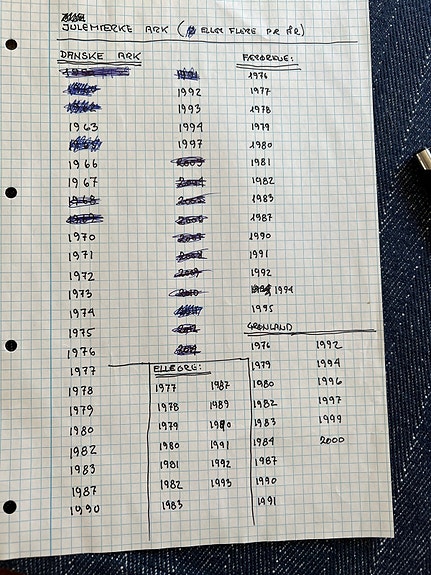 JULEMÆRKE ARK ( ELLER FLERE PR ÅR)
DANSKE ARK
1963
1966
1967
1970
1971
1972
1973
1974
1975
1976
1977
1978
1979
1980
1982
1983
1987
1990
1992
1993
1994
1997
2003
2004
2005
2006
2007
2008
2009
2010
FÆRØERNE:
1976
1977
1978
1979
1980
1981
1982
1983
1987
1990
1991
1992
1994
1995
GRØNLAND
1976
1979
1980
1982
1983
1984
1987
1990
1991
1992
1994
1996
1997
1999
2000
1977
1978
1979
1980
1981
1982
1983
1987
1989
1990
1991
1992
1993